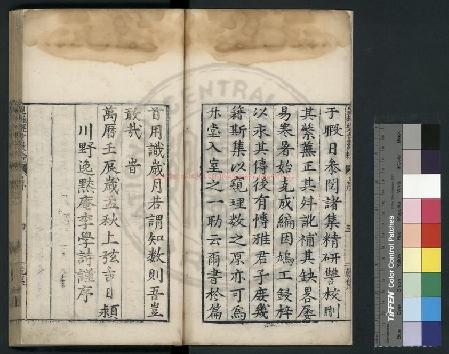 于暇日參閱諸集精研讐校刪
其紫蕪正其舛訛補其缺畧歷
易寒暑始克成編因鳩工鋟梓
以永其傳後有博雅君子庶幾
籍斯集以窺理数之原亦可為
升堂入室之一助云爾書於篇
首用識歲月若謂知数則吾豈
敢哉 旹
萬曆壬辰歲孟秋上弦吉日潁
川野逸默庵李學詩謹序
TIFFEN Color Control Patches